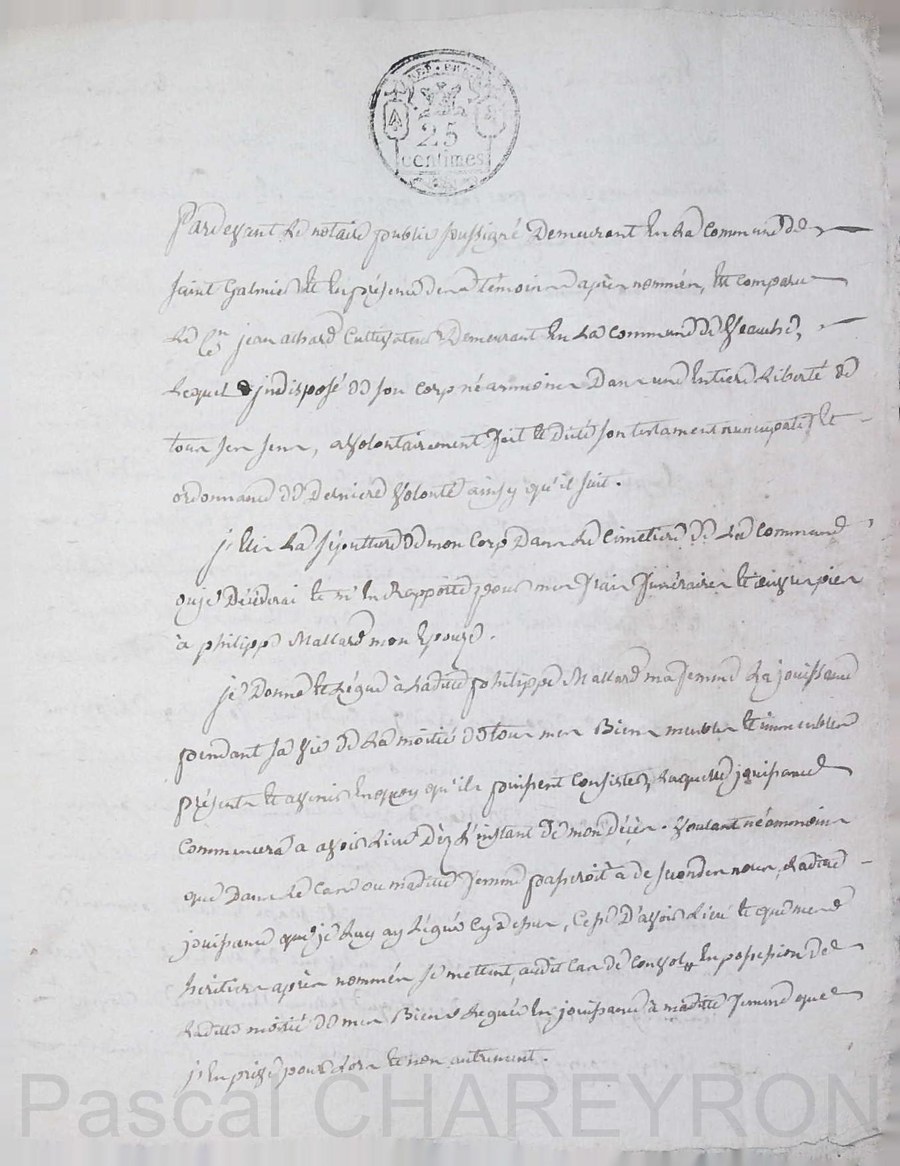 REP. FRA
25
centimes
Pardevant le notaire public soussigné Demeurant En La Commune de
Saint Galmier Et En présence des témoins après nommés, Est comparu
Le C.en jean achard Cultivateur Demeurant En La Commune de Veauche,
Lequel indisposé de son corp néanmoins Dans une Entiere Liberté de
tous ses sens, a volontairement fait Et dicté son testament nuncupatif Et
ordonnance de Derniere Volonté ainsy qu'il suit.
j'Elis La sépulture de mon Corp Dans le Cimetiere de La Commune
ou je Décéderai Et m'En Rapporte pour mes frais funéraires Et œuvres pies
à philippe Mallard mon Epouze.
je Donne Et Légue à Ladite philippe Mallard ma femme La jouissance
pendant sa vie de La moitié de tous mes Biens meubles Et immeubles
présents Et avenir En quoy qu'ils puissent Consister, Laquelle jouissance
Commencera a avoir Lieu Dèz L'instant de mon Décès. Voulant néammoins
que Dans Le Cas ou madite femme passeroit à de secondes noces, Ladite
jouissance que je Luy ay Légué Cy dessus, Cesse D'avoir Lieu Et que mes
héritiers après nommés se mettent, audit Cas de Convol, En possession de
Ladite moitié de mes Biens Legués En jouissance à madite femme que
j'En prive pour Lors Et non autrement.
Pascal CHAREYRON